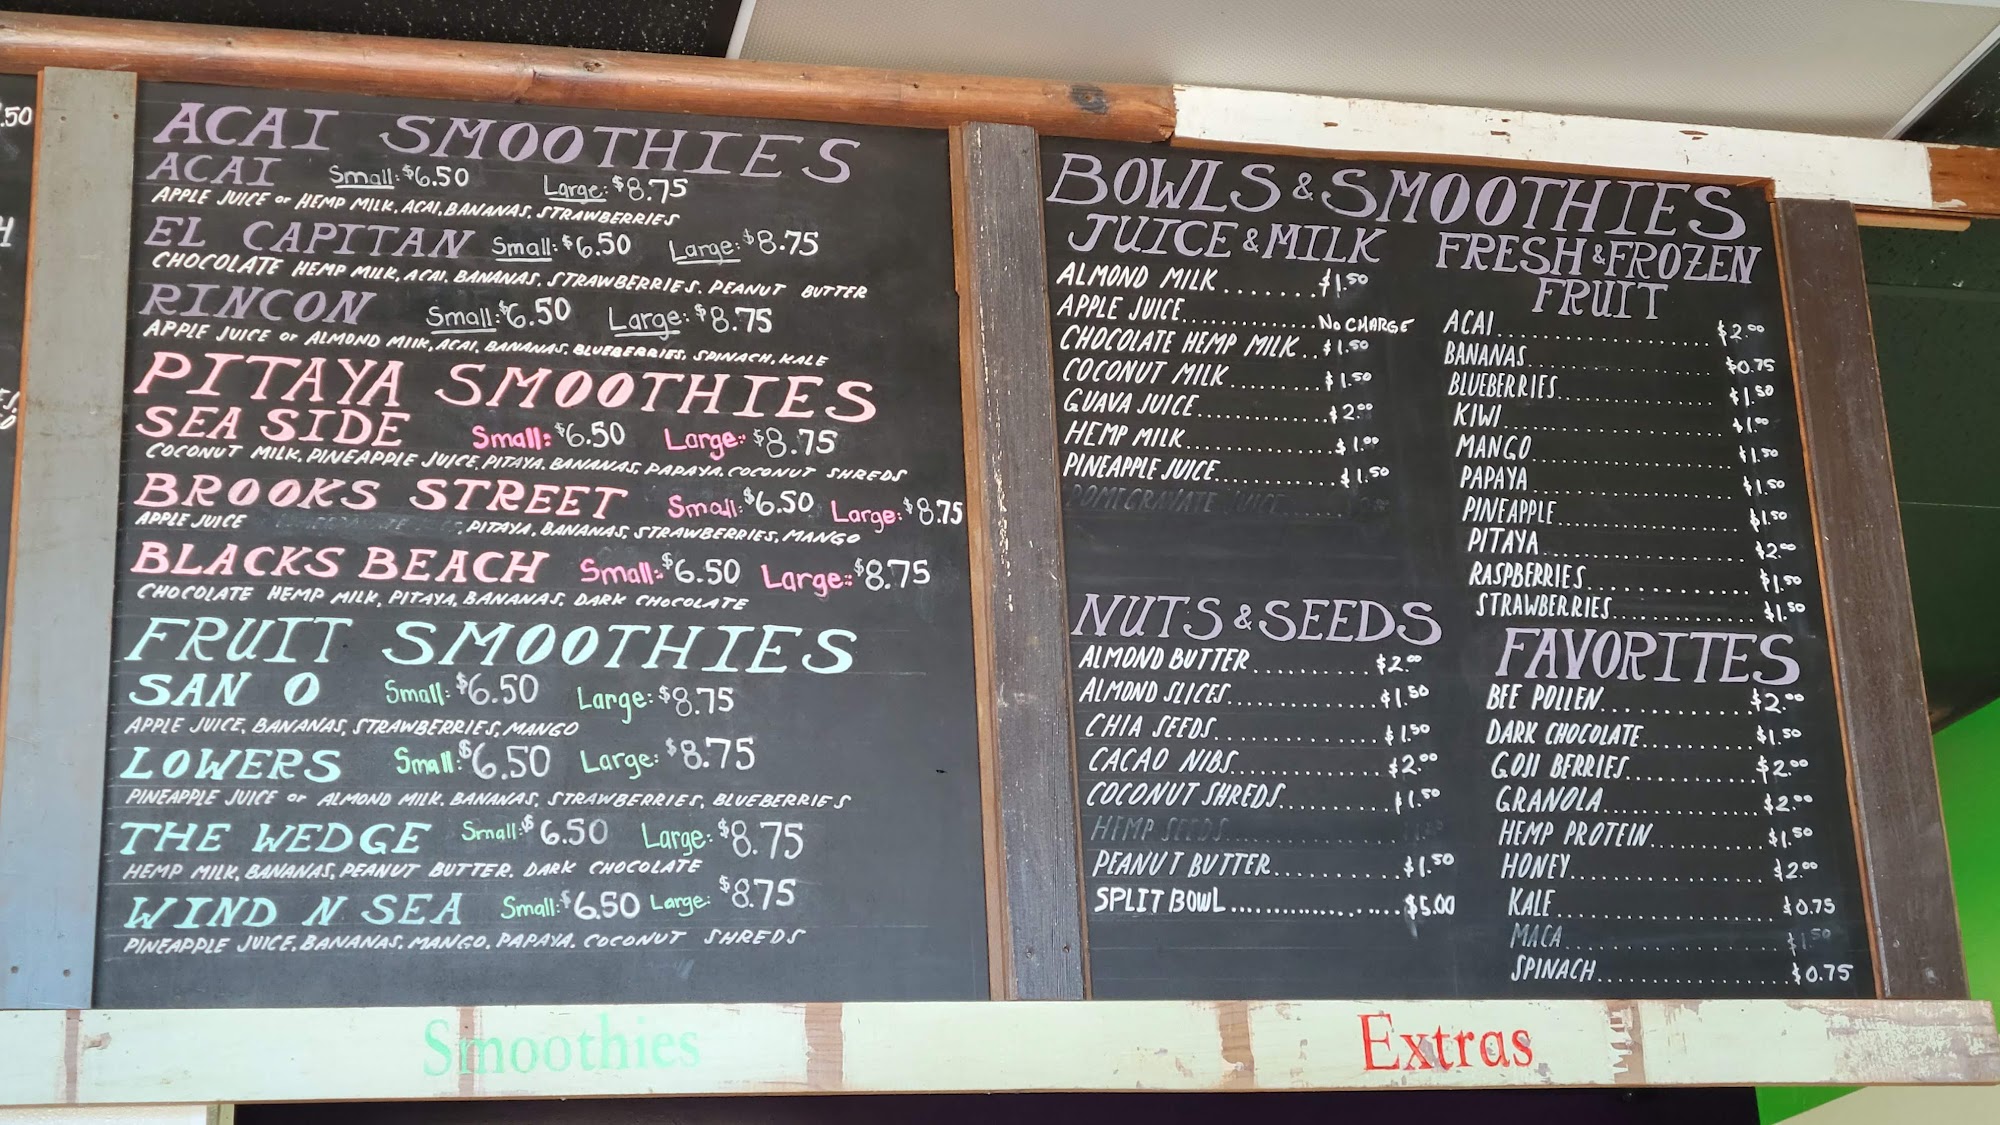 .50
ACAI SMOOTHIES
ACAI Small: $6.50 Large: $8.75
APPLE JUICE or HEMP MILK, ACAI, BANANAS, STRAWBERRIES
EL CAPITAN Small: $6.50 Large: $8.75
CHOCOLATE HEMP MILK, ACAI, BANANAS, STRAWBERRIES, PEANUT BUTTER
RINCON Small: $6.50 Large: $8.75
APPLE JUICE or ALMOND MILK, ACAI, BANANAS, BLUEBERRIES, SPINACH, KALE
PITAYA SMOOTHIES
SEA SIDE Small: $6.50 Large: $8.75
COCONUT MILK, PINEAPPLE JUICE, PITAYA, BANANAS, PAPAYA, COCONUT SHREDS
BROOKS STREET Small: $6.50 Large: $8.75
APPLE JUICE , PITAYA, BANANAS, STRAWBERRIES, MANGO
BLACKS BEACH Small: $6.50 Large: $8.75
CHOCOLATE HEMP MILK, PITAYA, BANANAS, DARK CHOCOLATE
FRUIT SMOOTHIES
SAN O Small: $6.50 Large: $8.75
APPLE JUICE, BANANAS, STRAWBERRIES, MANGO
LOWERS Small: $6.50 Large: $8.75
PINEAPPLE JUICE or ALMOND MILK, BANANAS, STRAWBERRIES, BLUEBERRIES
THE WEDGE Small: $6.50 Large: $8.75
HEMP MILK, BANANAS, PEANUT BUTTER, DARK CHOCOLATE
WIND N SEA Small: $6.50 Large: $8.75
PINEAPPLE JUICE, BANANAS, MANGO, PAPAYA, COCONUT SHREDS
Smoothies
BOWLS & SMOOTHIES
JUICE & MILK
ALMOND MILK ....... $1.50
APPLE JUICE ............. NO CHARGE
CHOCOLATE HEMP MILK ... $1.50
COCONUT MILK ........ $1.50
GUAVA JUICE ........... $2.00
HEMP MILK ............. $1.00
PINEAPPLE JUICE .......... $1.50
POMEGRANATE JUICE
NUTS & SEEDS
ALMOND BUTTER .......... $2.00
ALMOND SLICES ............ $1.50
CHIA SEEDS .............. $1.50
CACAO NIBS ............. $2.00
COCONUT SHREDS ......... $1.50
HEMP SEEDS
PEANUT BUTTER .......... $1.50
SPLIT BOWL .................. $5.00
FRESH & FROZEN
FRUIT
ACAI .................. $2.00
BANANAS ................ $0.75
BLUEBERRIES ............. $1.50
KIWI .................. $1.00
MANGO ................. $1.50
PAPAYA ................ $1.50
PINEAPPLE .............. $1.50
PITAYA ................ $2.00
RASPBERRIES ............ $1.50
STRAWBERRIES ........... $1.50
FAVORITES
BEE POLLEN ............ $2.00
DARK CHOCOLATE ........ $1.50
GOJI BERRIES .......... $2.00
GRANOLA .............. $2.00
HEMP PROTEIN ......... $1.50
HONEY ................ $2.00
KALE ................. $0.75
MACA ................. $1.50
SPINACH .............. $0.75
Extras